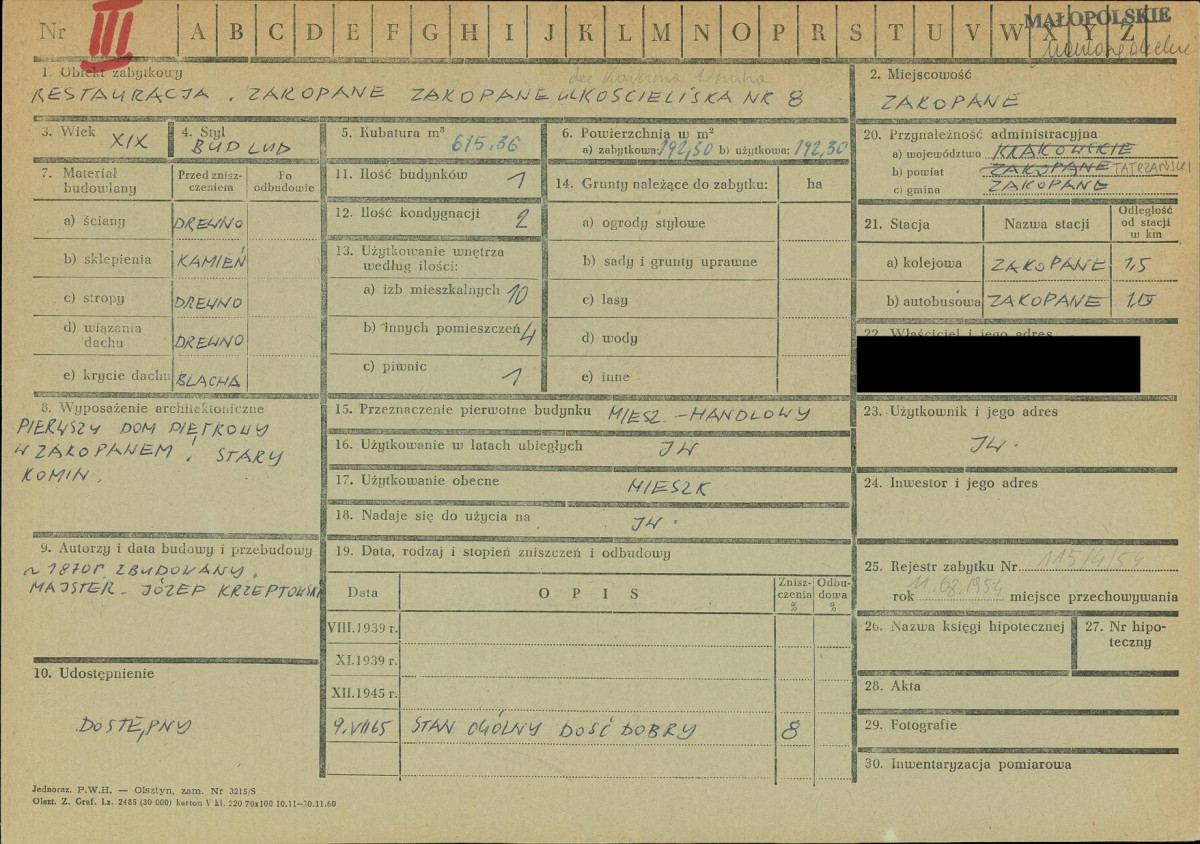 Nr III A B C D E F G H I J K L M N O P R S T U V W X Y Z
MAŁOPOLSKIE
1. Obiekt zabytkowy
RESTAURACJA . ZAKOPANE ZAKOPANE ul KOŚCIELISKA NR 8
2. Miejscowość
ZAKOPANE
3. Wiek XIX
4. Styl BUD LUD
5. Kubatura m³ 615.36
6. Powierzchnia w m²
a) zabytkowa: 192,30 b) użytkowa: 192,30
7. Materiał budowlany
Przed zniszczeniem
Po odbudowie
a) ściany DREWNO
b) sklepienia KAMIEŃ
c) stropy DREWNO
d) wiązania dachu DREWNO
e) krycie dachu BLACHA
8. Wyposażenie architektoniczne
PIERWSZY DOM PIĘTROWY
W ZAKOPANEM ! STARY
KOMIN.
9. Autorzy i data budowy i przebudowy
~ 1870r. ZBUDOWANY.
MAJSTER. JÓZEF KRZEPTOWSKI
10. Udostępnienie
DOSTĘPNY
11. Ilość budynków 1
12. Ilość kondygnacji 2
13. Użytkowanie wnętrza
według ilości:
a) izb mieszkalnych 10
b) innych pomieszczeń 4
c) piwnic 1
14. Grunty należące do zabytku: ha
a) ogrody stylowe
b) sady i grunty uprawne
c) lasy
d) wody
e) inne
15. Przeznaczenie pierwotne budynku MIESZ. - HANDLOWY
16. Użytkowanie w latach ubiegłych JW
17. Użytkowanie obecne MIESZK
18. Nadaje się do użycia na JW.
19. Data, rodzaj i stopień zniszczeń i odbudowy
Data OPIS Zniszczenia % Odbudowa %
VIII.1939 r.
XI.1939 r.
XII.1945 r.
9.VII 65 STAN OGÓLNY DOŚĆ DOBRY 8
20. Przynależność administracyjna
a) województwo KRAKOWSKIE
b) powiat ZAKOPANE TATRZAŃSKI
c) gmina ZAKOPANE
21. Stacja Nazwa stacji Odległość od stacji w km
a) kolejowa ZAKOPANE 1,5
b) autobusowa ZAKOPANE 1,5
22. Właściciel i jego adres
23. Użytkownik i jego adres
JW.
24. Inwestor i jego adres
25. Rejestr zabytku Nr 115/4/54
rok 11.08.1954 miejsce przechowywania
26. Nazwa księgi hipotecznej
27. Nr hipoteczny
28. Akta
29. Fotografie
30. Inwentaryzacja pomiarowa
Jednoraz. P.W.H. — Olsztyn, zam. Nr 3215/S
Olszt. Z. Graf. Lz. 2485 (30 000) karton V kl. 220 70x100 10.11—30.11.60